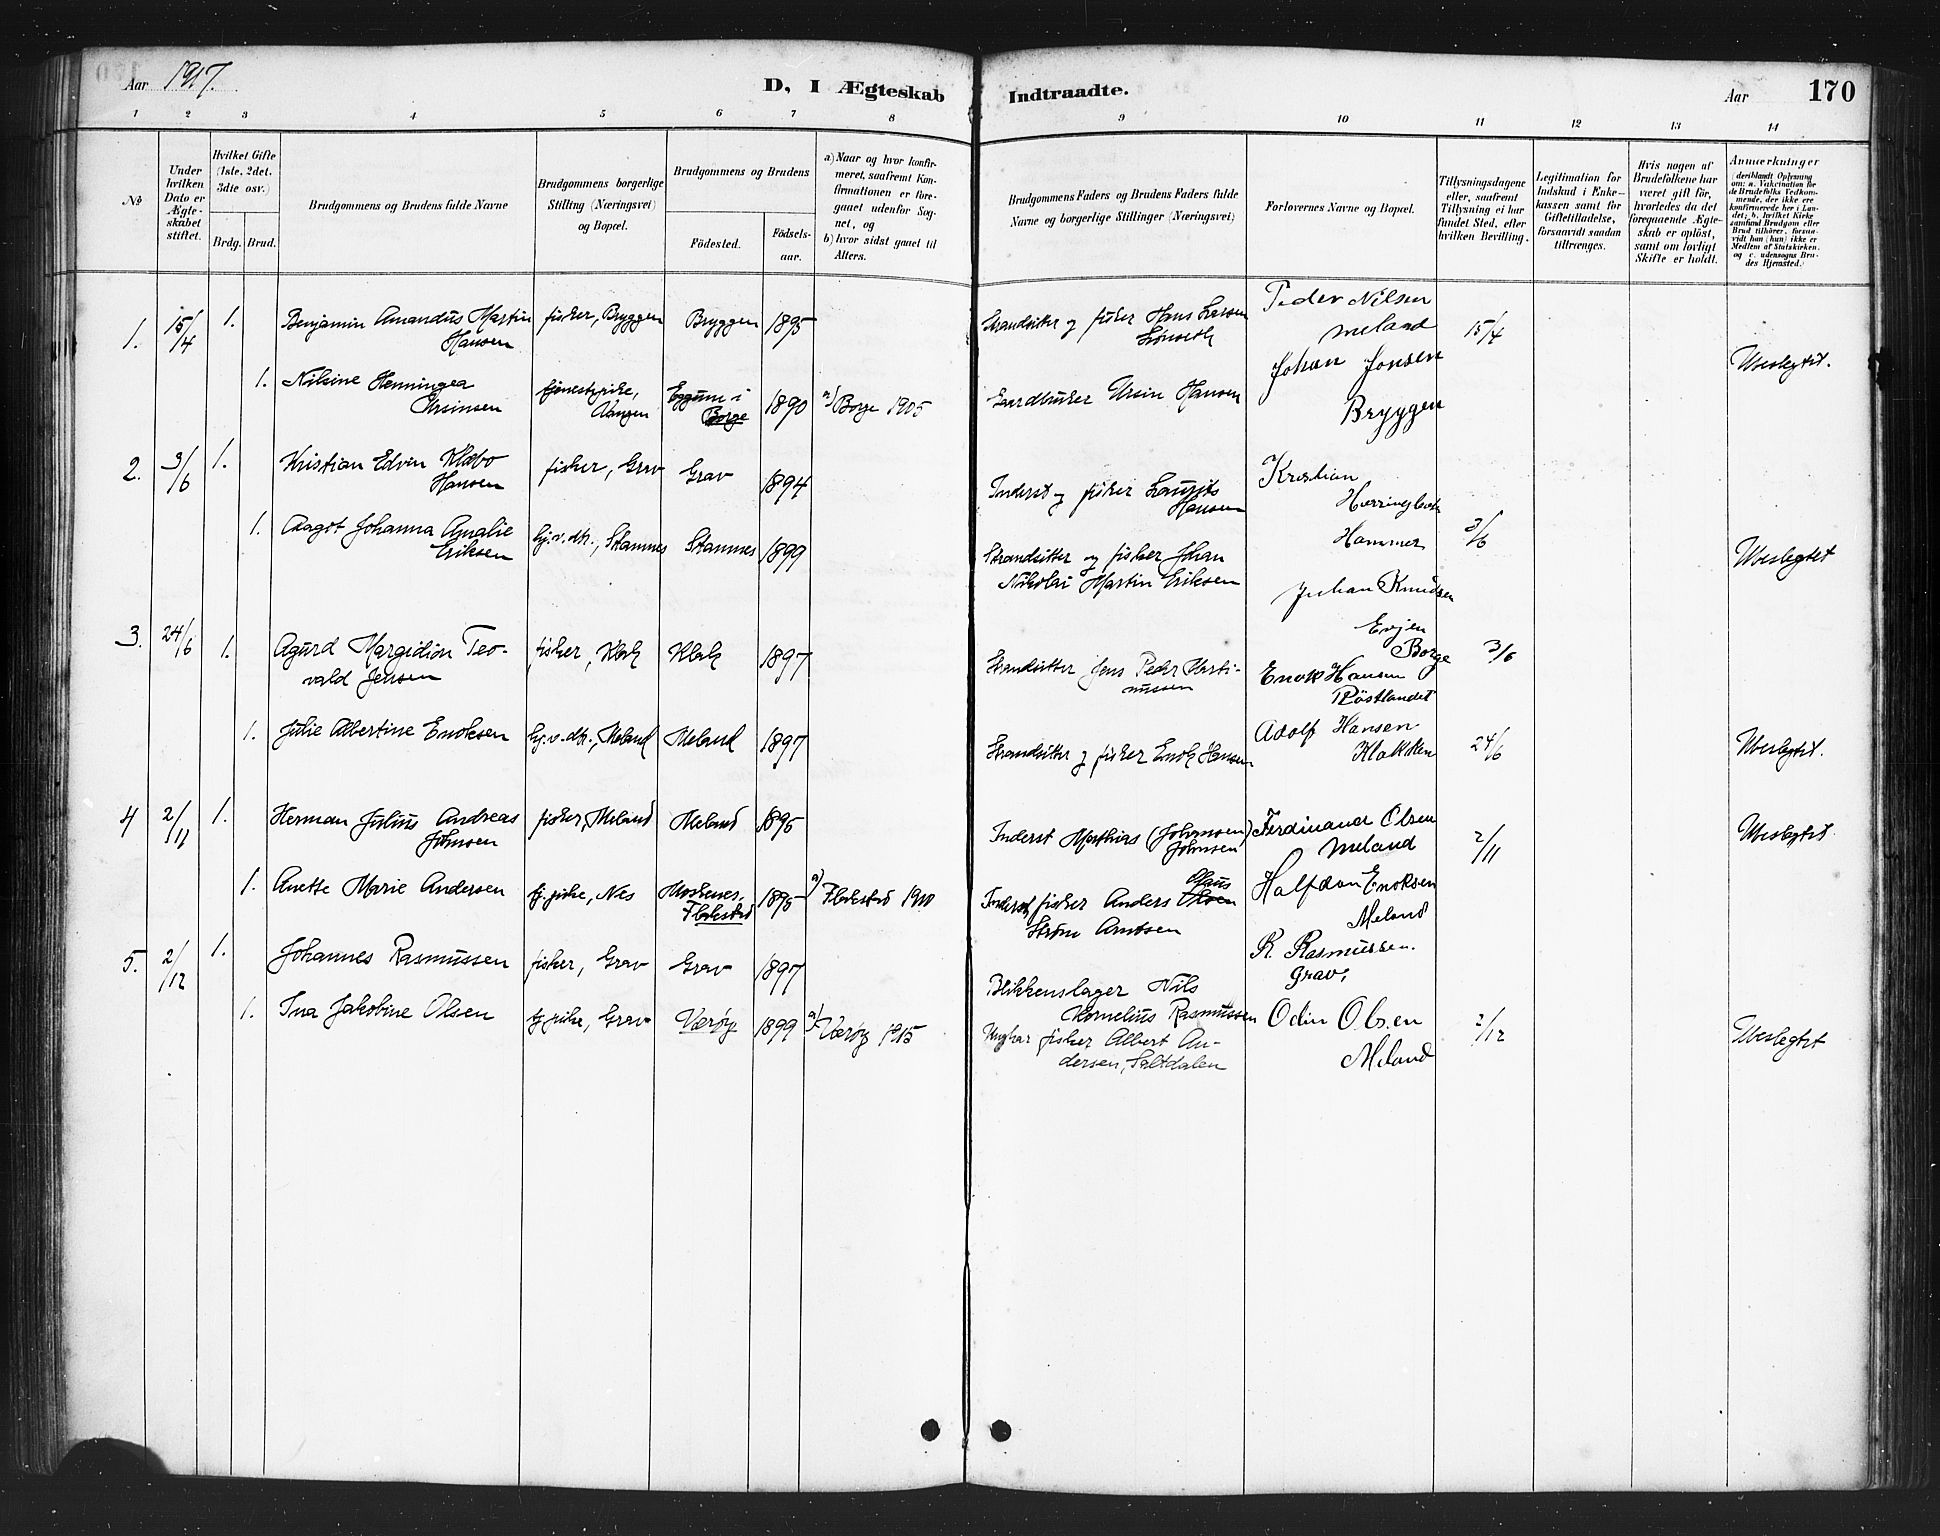 Aar 1917.
D, I Ægteskab Indtraadte.
Aar 170
1 2 3 4 5 6 7 8 9 10 11 12 13 14
No
Under hvilken Dato er Ægteskabet stiftet.
Hvilket Gifte (1ste, 2det, 3die osv.)
Brdg. Brud.
Brudgommens og Brudens fulde Navne
Brudgommens borgerlige Stilling (Næringsvei) og Bopæl.
Brudgommens og Brudens
Födested. Födsels-aar.
a) Naar og hvor konfir-
meret, saafremt Kon-
firmationen er fore-
gaaet udenfor Sog-
net, og
b) hvor sidst gaaet til
Alters.
Brudgommens Faders og Brudens Faders fulde
Navne og borgerlige Stillinger (Næringsvei)
Forlovernes Navne og Bopæl.
Tillysningsdagene
eller, saafremt
Tillysning ei har
fundet Sted, efter
hvilken Bevilling.
Legitimation for
Indskud i Enke-
kassen samt for
Giftetilladelse,
forsaavidt saadan
tiltrænges.
Hvis nogen af
Brudefolkene har
været gift för,
hvorledes da det
foregaaende Ægte-
skab er oplöst,
samt om lovligt
Skifte er holdt.
Anmærkninger
(deriblandt Oplysning
om: a. Vakcination for
de Brudefolks Vedkom-
mende, der ikke ere
konfirmerede her i Lan-
det; b. hvilket Kirke-
samfund Brudgom eller
Brud tilhörer, forsaa-
vidt han (hun) ikke er
Medlem af Statskirken,
og c. udensogns Bru-
des Hjemsted.)
1. 15/4 1. Benjamin Amandus Martin Hansen fisker, Bryggen Bryggen 1895
Strandsitter og fisker Hans Larsen
Peder Nilsen
Meland
15/4
1. Nilsine Henningea Ursinsen tjenestepike, Vangen Eggum i Borge 1890 a) Borge 1905
Gaardbruker Ursin Hansen
Johan Jonsen
Bryggen
Ubeslegtet.
2. 3/6 1. Kristian Edvin Klæbo Hansen fisker, Grav Grav 1894
Inderst og fisker Laurits Hansen
Kristian
Hammer
3/6
1. Aagot Johanna Amalie Eriksen hj.v.dtr., Stamnes Stamnes 1899
Strandsitter og fisker Johan
Nikolai Martin Eriksen
Johan Knudsen
Evjen
Borge
Ubeslegtet
3. 24/6 1. Agurd Margidion Teo-
vald Jensen fisker, Klak Klak 1897
Strandsitter Jens Peder Marti-
nussen
Enok Hansen
Röstlandet
3/6
1. Julie Albertine Enoksen hj.v.dtr., Meland Meland 1897
Strandsitter og fisker Enok Hansen
Adolf Hansen
Klakken
24/6
Ubeslegtet.
4 2/11 1. Herman Julius Andreas Johnsen fisker, Meland Meland 1895
Inderst Mathias (Johansen) Johnsen
Ferdinand Olsen
Meland
2/11
Ubeslegtet
1. Anette Marie Andersen tj.pike, Nes Moskenes, Flakstad 1895 a) Flakstad 1910
Inderst, fisker Anders Olaus Olsen
Strøm Arntsen
Halfdan Enoksen
Meland
5. 2/12 1. Johannes Rasmussen fisker, Grav Grav 1897
Blikkenslager Nils
Kornelius Rasmussen
R. Rasmussen.
Grav,
1. Ina Jakobine Olsen tj.pike, Grav Værøy 1899 a) Værøy 1915
Ungkar fisker Albert An-
dersen, Saltdalen
Odin Olsen
Meland
2/12
Ubeslegtet